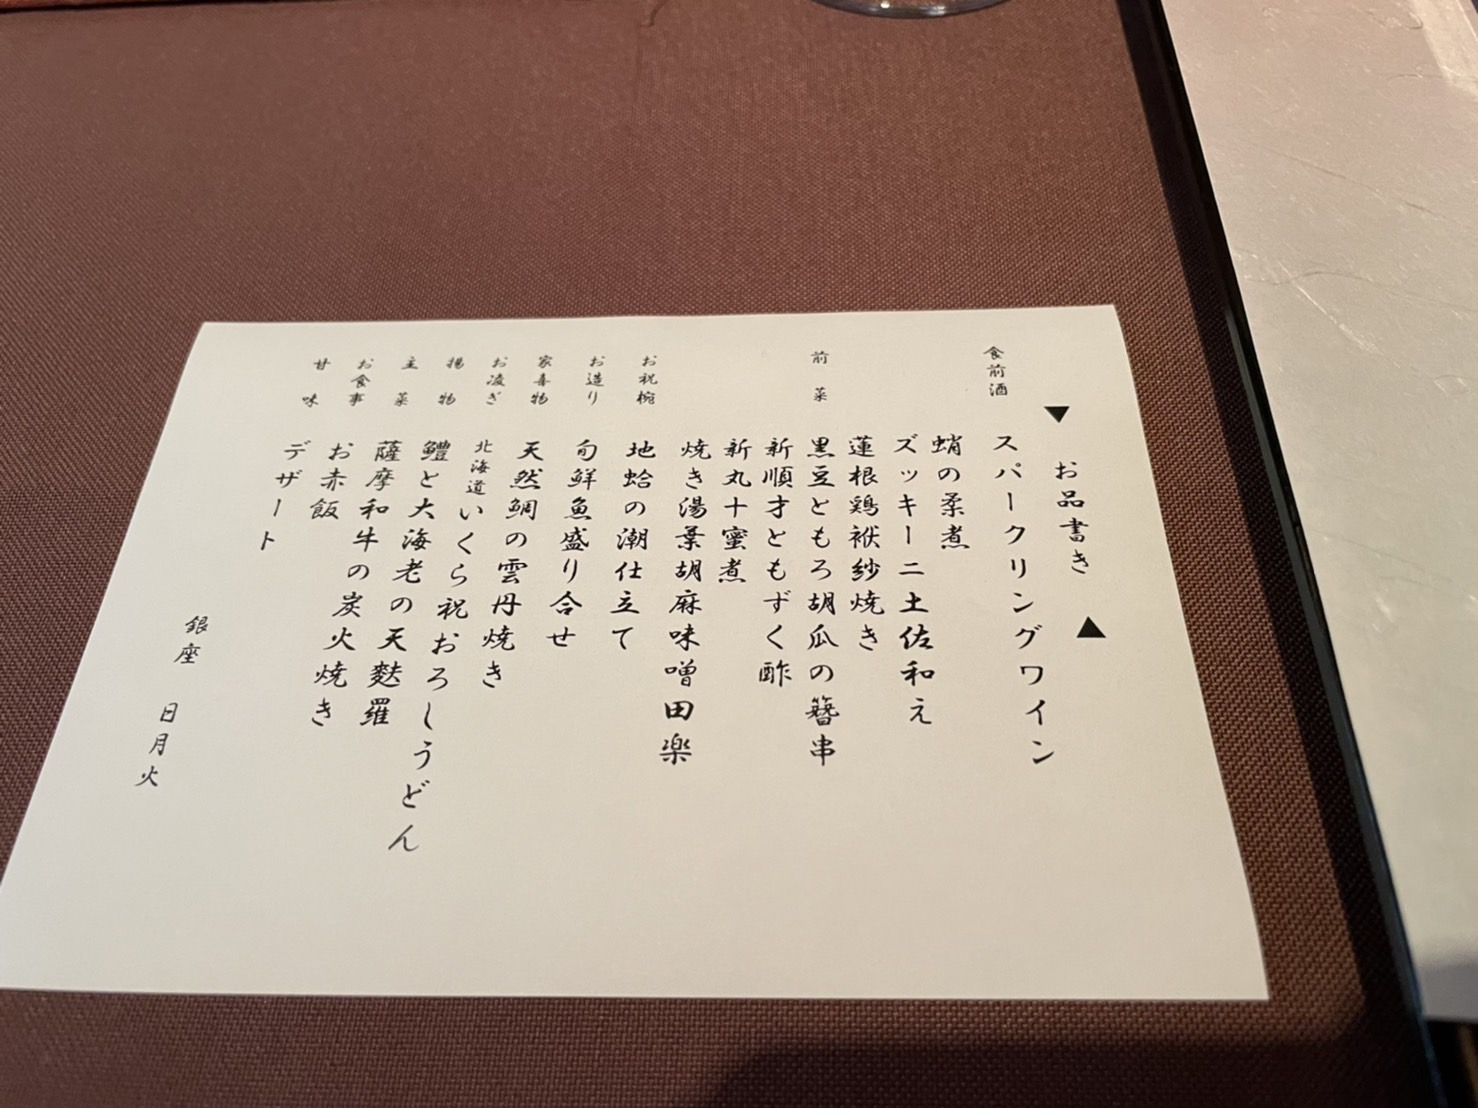 ▼ お品書き ▲
食前酒 スパークリングワイン
前菜 蛸の柔煮
ズッキーニ土佐和え
蓮根鶏袱紗焼き
黒豆ともろ胡瓜の簪串
新順才ともずく酢
新丸十蜜煮
焼き湯葉胡麻味噌田楽
お祝椀 地蛤の潮仕立て
お造り 旬鮮魚盛り合せ
家喜物 天然鯛の雲丹焼き
お凌ぎ 北海道いくら祝おろしうどん
揚物 鱧と大海老の天麩羅
主菜 薩摩和牛の炭火焼き
お食事 お赤飯
甘味 デザート
銀座 日月火